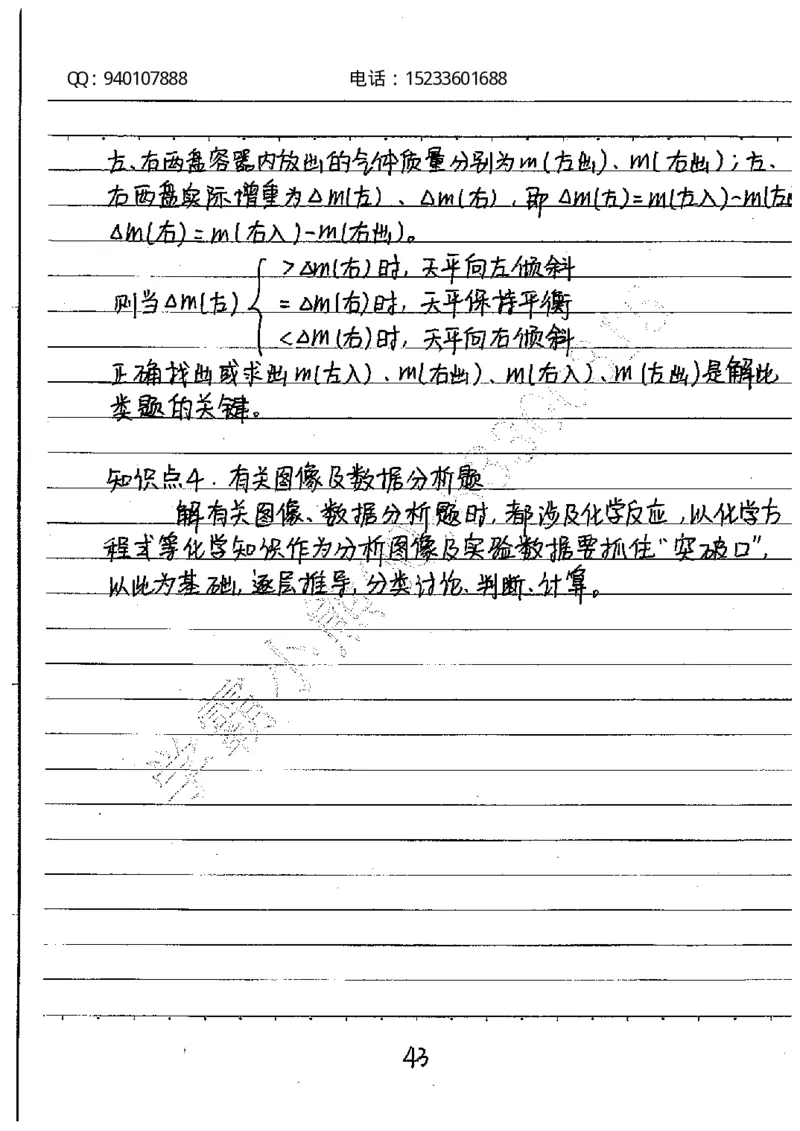 QQ: 940107888 电话：15233601688
左、右两盘容器内放出的气体质量分别为m(左出)、m(右出)；左、
右两盘实际增重为Δm(左)、Δm(右)，即Δm(左)=m(左入)-m(左
Δm(右)=m(右入)-m(右出)。
>Δm(右)时，天平向左倾斜
则当Δm(左) =Δm(右)时，天平保持平衡
<Δm(右)时，天平向右倾斜
正确找出或求出m(左入)、m(右出)、m(右入)、m(左出)是解此
类题的关键。
知识点4．有关图像及数据分析题
解有关图像、数据分析题时，都涉及化学反应，以化学方
程式等化学知识作为分析图像及实验数据要抓住“突破口”，
以此为基础，逐层推导，分类讨论、判断、计算。
学霸小熊
43